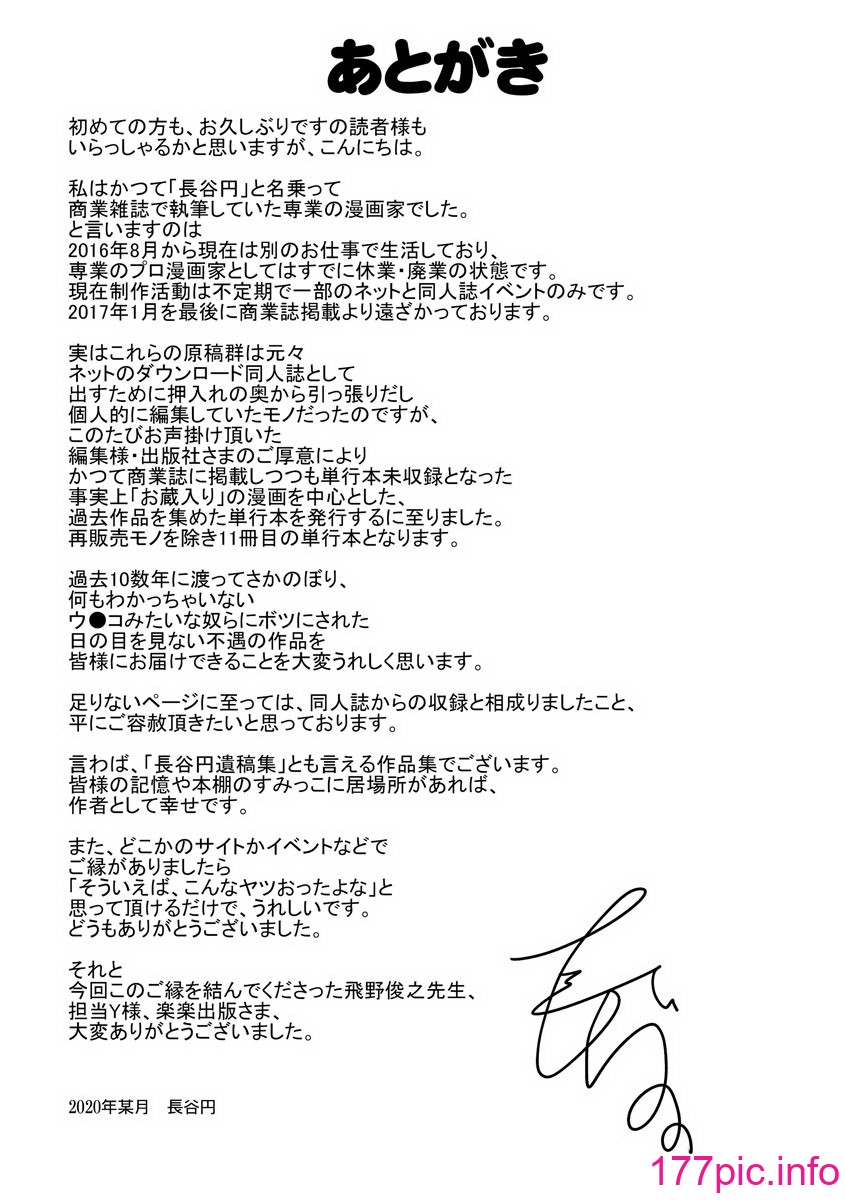 あとがき
初めての方も、お久しぶりですの読者様も
いらっしゃるかと思いますが、こんにちは。
私はかつて「長谷円」と名乗って
商業雑誌で執筆していた専業の漫画家でした。
と言いますのは
2016年8月から現在は別のお仕事で生活しており、
専業のプロ漫画家としてはすでに休業・廃業の状態です。
現在制作活動は不定期で一部のネットと同人誌イベントのみです。
2017年1月を最後に商業誌掲載より遠ざかっております。
実はこれらの原稿群は元々
ネットのダウンロード同人誌として
出すために押入れの奥から引っ張りだし
個人的に編集していたモノだったのですが、
このたびお声掛け頂いた
編集様・出版社さまのご厚意により
かつて商業誌に掲載しつつも単行本未収録となった
事実上「お蔵入り」の漫画を中心とした、
過去作品を集めた単行本を発行するに至りました。
再販売モノを除き11冊目の単行本となります。
過去10数年に渡ってさかのぼり、
何もわかっちゃいない
ウ●コみたいな奴らにボツにされた
日の目を見ない不遇の作品を
皆様にお届けできることを大変うれしく思います。
足りないページに至っては、同人誌からの収録と相成りましたこと、
平にご容赦頂きたいと思っております。
言わば、「長谷円遺稿集」とも言える作品集でございます。
皆様の記憶や本棚のすみっこに居場所があれば、
作者として幸せです。
また、どこかのサイトかイベントなどで
ご縁がありましたら
「そういえば、こんなヤツおったよな」と
思って頂けるだけで、うれしいです。
どうもありがとうございました。
それと
今回このご縁を結んでくださった飛野俊之先生、
担当Y様、楽楽出版さま、
大変ありがとうございました。
2020年某月　長谷円
177pic.info